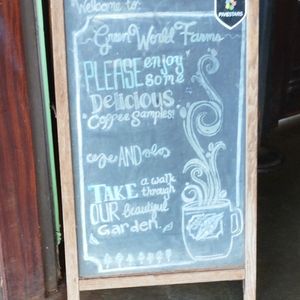 Welcome to:
Green World Farms
PLEASE enjoy
some
Delicious
Coffee Samples!
AND
TAKE a walk
through
OUR beautiful
Garden.
FIVESTARS